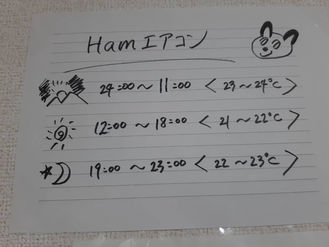 Hamエアコン
24:00～11:00 < 23～24℃ >
12:00～18:00 < 21～22℃ >
19:00～23:00 < 22～23℃ >